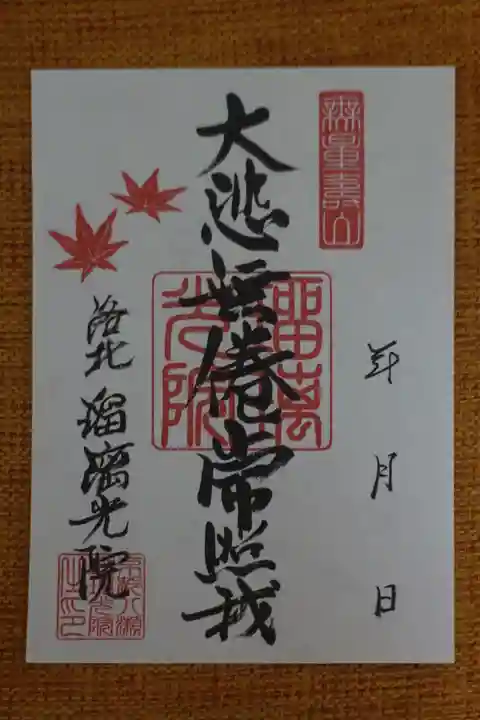 無量壽山
年 月 日
大悲無倦常照我
瑠璃光院
洛北 瑠璃光院